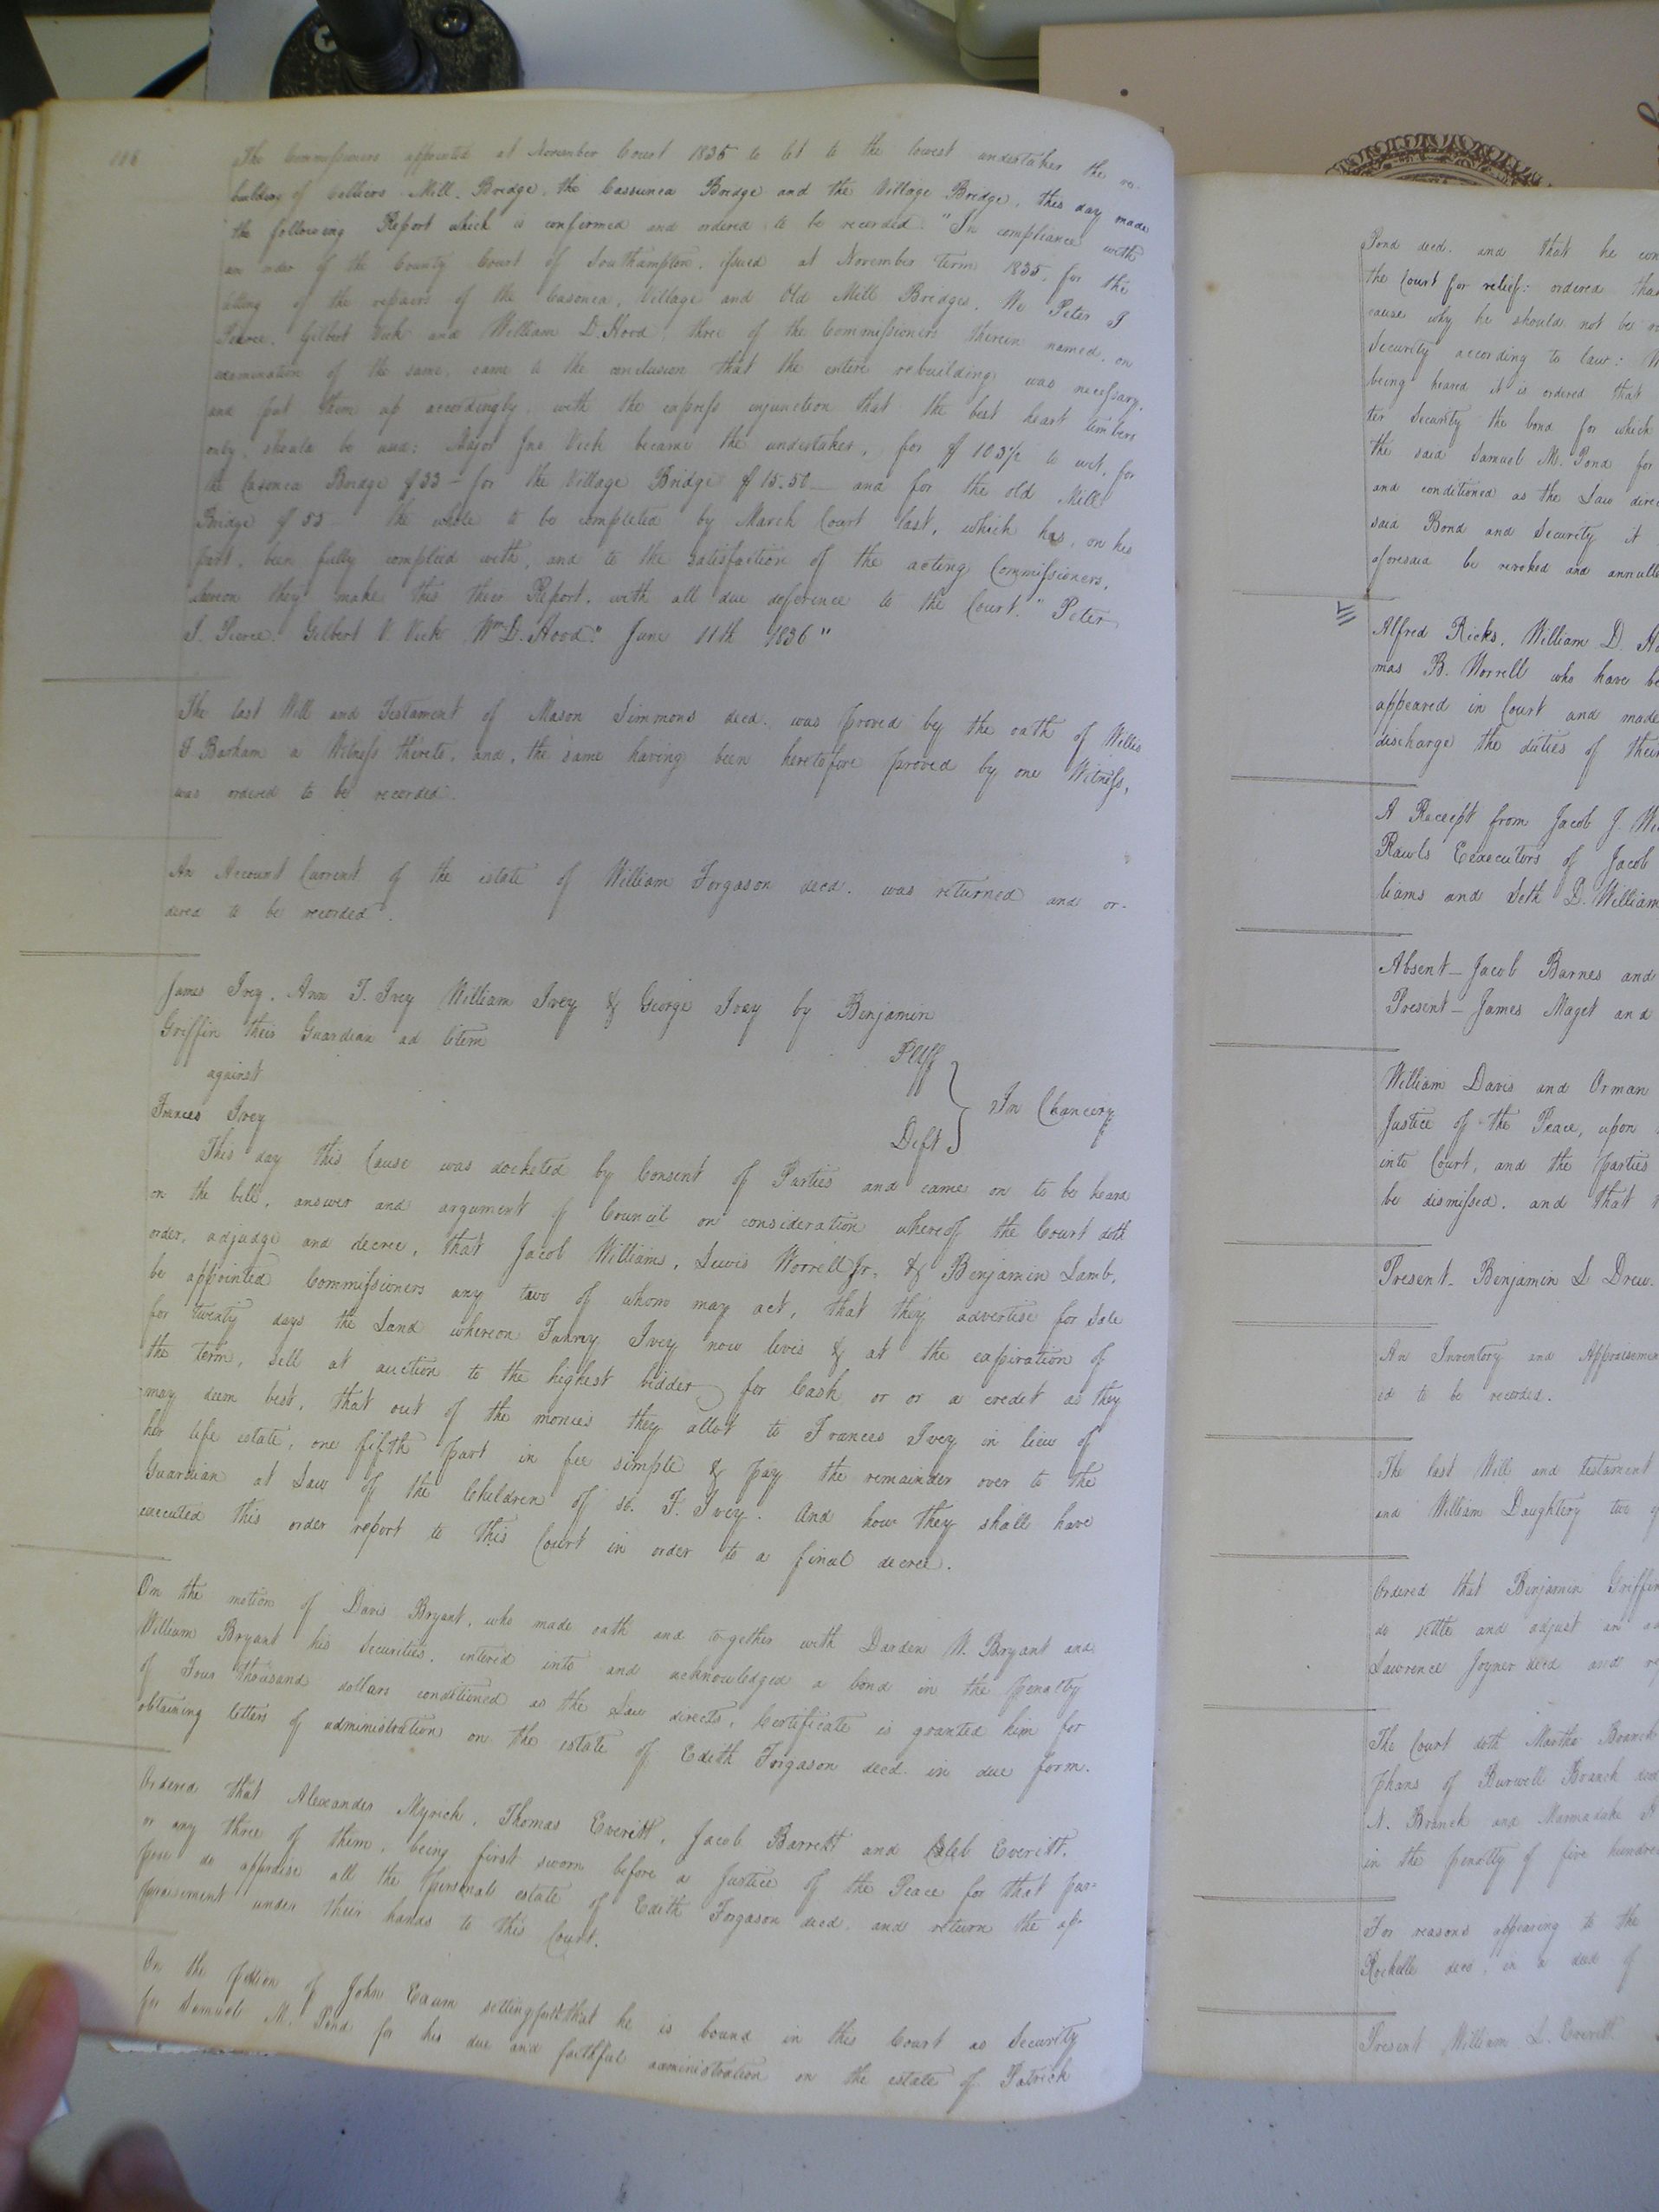 The Commissioners appointed at November Court 1835 to let to the lowest undertaker the re-
building of Mill Bridge, the Cassunea Bridge and the Village Bridge, this day made
the following Report which is confirmed and ordered to be recorded. "In compliance with
an order of the County Court of Southampton, issued at November term 1835, for the
letting of the repairs of the Casonea, Village and Old Mill Bridges, We Peter J
Pearce, Gilbert Vick and William D. Hood, three of the Commissioners therein named, on
examination of the same, came to the conclusion that the entire rebuilding was necessary,
and put them up accordingly with the express injunction that the best heart timbers
only, should be used: Major Jno Vick became the undertaker, for $ 103½ to wit, for
the Casonea Bridge $33 – for the Village Bridge $15.50 – and for the old Mill
Bridge $55 – the whole to be completed by March Court last, which has, on his
part, been fully complied with, and to the satisfaction of the acting Commissioners,
whereon they make this their Report, with all due deference to the Court." Peter
J. Pearce. Gilbert V. Vick Wm D. Hood." June 11th 1836"
The last Will and Testament of Mason Simmons decd. was proved by the oath of Willis
J Barham a Witness thereto, and, the same having been heretofore proved by one Witness,
was ordered to be recorded.
An Account Current of the estate of William Forgason decd. was returned and or-
dered to be recorded.
James Ivey, Ann T. Ivey William Ivey & George Ivey by Benjamin
Griffin their Guardian ad litem Pltff
against
Frances Ivey Deft } In Chancery
This day this Cause was docketed by Consent of Parties and came on to be heard
on the bill, answer and argument of Council on consideration whereof the Court doth
order, adjudge and decree, that Jacob Williams, Lewis Worrell Jr. & Benjamin Lamb,
be appointed Commissioners any two of whom may act, that they advertise for Sale
for twenty days the Land whereon Fanny Ivey now lives & at the expiration of
the term, sell at auction to the highest bidder for Cash or or a credit as they
may deem best, that out of the monies they allot to Frances Ivey in lieu of
her life estate, one fifth part in fee simple & pay the remainder over to the
Guardian at Law of the Children of sd. F. Ivey. And how they shall have
executed this order report to this Court in order to a final decree.
On the motion of Davis Bryant, who made oath and together with Darden W. Bryant and
William Bryant his Securities, entered into and acknowledged a bond in the Penalty
of Four thousand dollars conditioned as the Law directs, Certificate is granted him for
obtaining letters of administration on the estate of Edith Forgason decd. in due form.
Ordered that Alexander Myrick, Thomas Everitt, Jacob Barrett and Caleb Everitt,
or any three of them, being first sworn before a Justice of the Peace for that pur-
pose do appraise all the personal estate of Edith Forgason decd. and return the ap-
praisement under their hands to this Court.
On the petition of John Eaum setting forth that he is bound in this Court as Security
for Samuel M. Pond for his due and faithful administration on the estate of Patrick
Pond decd. and that he con
the Court for relief: ordered tha
cause why he should not be
Security according to law:
being heard it is ordered that
ter Security the bond for which
the said Samuel M. Pond for
and conditioned as the Law dire
said Bond and Security it
aforesaid be revoked and annulle
Alfred Ricks, William D. Ho
mas B. Worrell who have be
appeared in Court and made
discharge the duties of their
A Receipt from Jacob J. Wi
Rawls Eexecutors of Jacob
liams and Seth D. William
Absent – Jacob Barnes and
Present – James Maget and
William Davis and Orman
Justice of the Peace, upon
into Court, and the parties
be dismissed, and that
Present – Benjamin L Drew.
An Inventory and Appraiseme
ed to be recorded.
The last Will and testament
and William Daughtery two
Ordered that Benjamin Griffin
do settle and adjust an a
Lawrence Joyner decd and re
The Court doth Martha Branch
phans of Burwell Branch decd
N. Branch and Marmaduke
in the penalty of five hundre
For reasons appearing to the
Rochelle decd, in a deed of
Present William L. Everitt